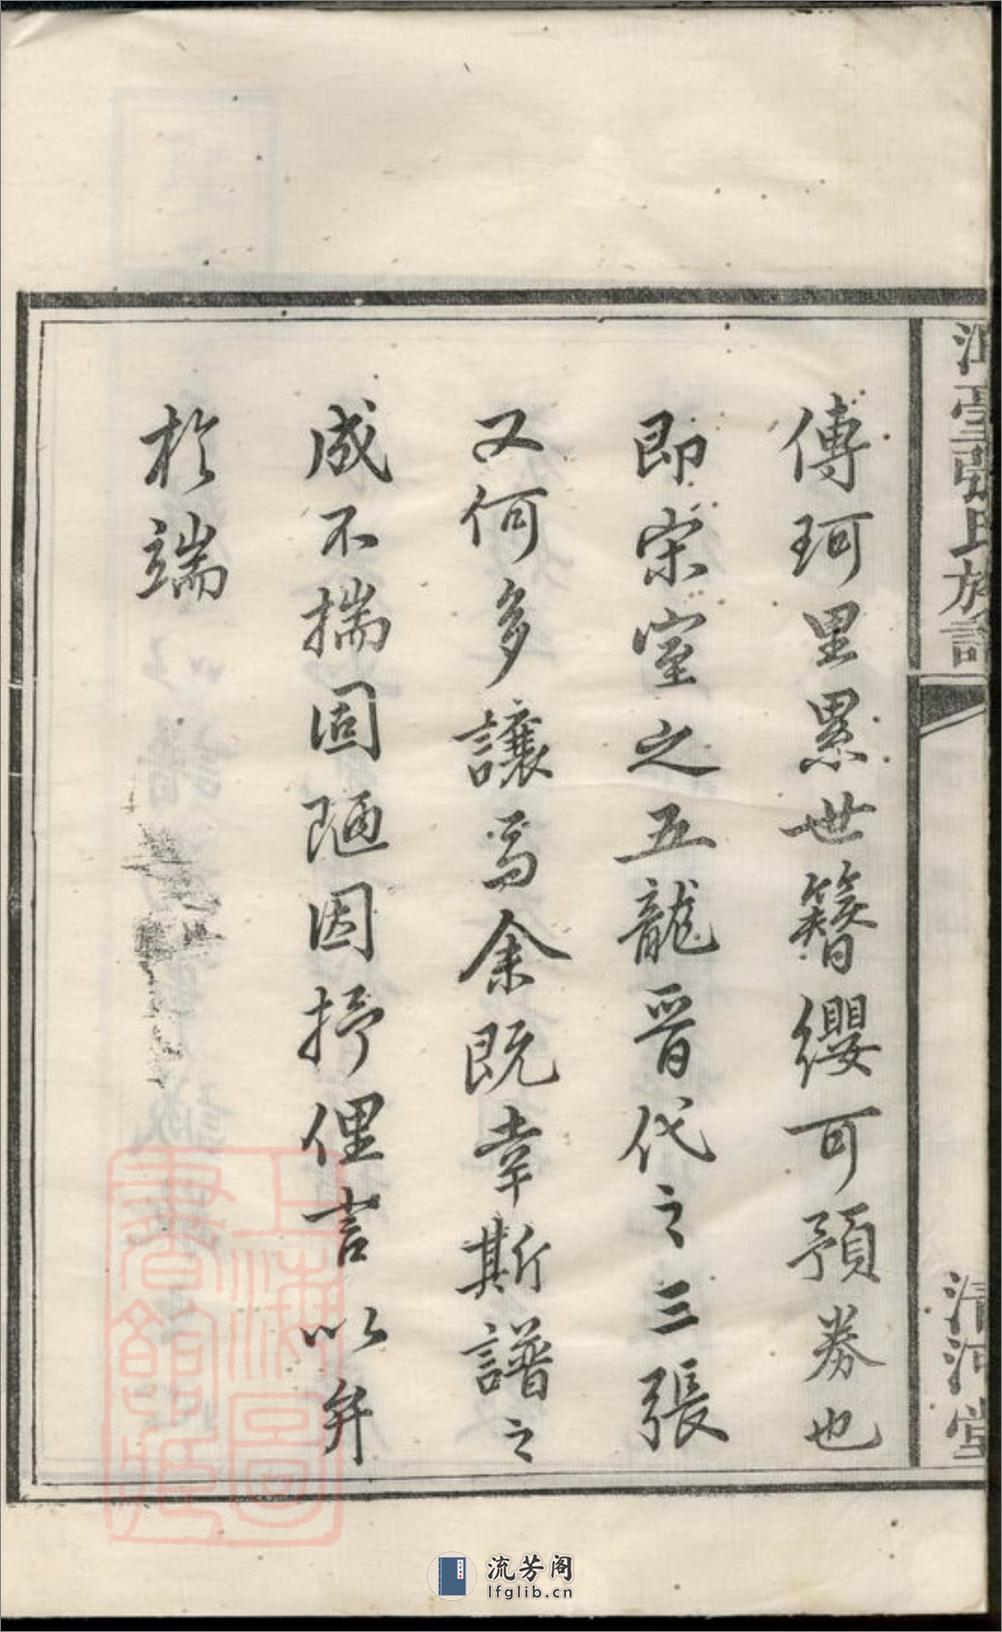 傳珂里累世簪纓可預券也
即宋室之五龍晉代之三張
又何多讓焉余既幸斯譜之
成不揣固陋因抒俚言以弁
於端
張氏族譜
清河堂
上海圖書館藏
流芳阁
lfglib.cn